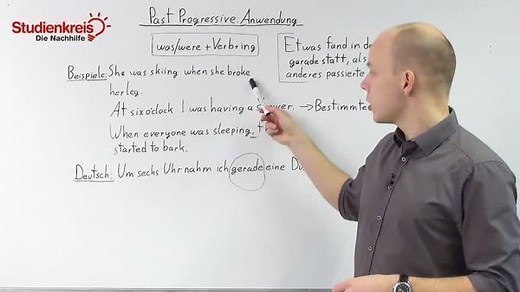 Studienkreis
Die Nachhilfe
Past Progressive Anwendung
was/were + Verb + ing
Etwas fand in de
gerade statt, als
anderes passierte
Beispiele: She was skiing when she broke
her leg.
At six o'clock I was having a shower. → Bestimmte
When everyone was sleeping, t
started to bark.
Deutsch: Um sechs Uhr nahm ich gerade eine Du